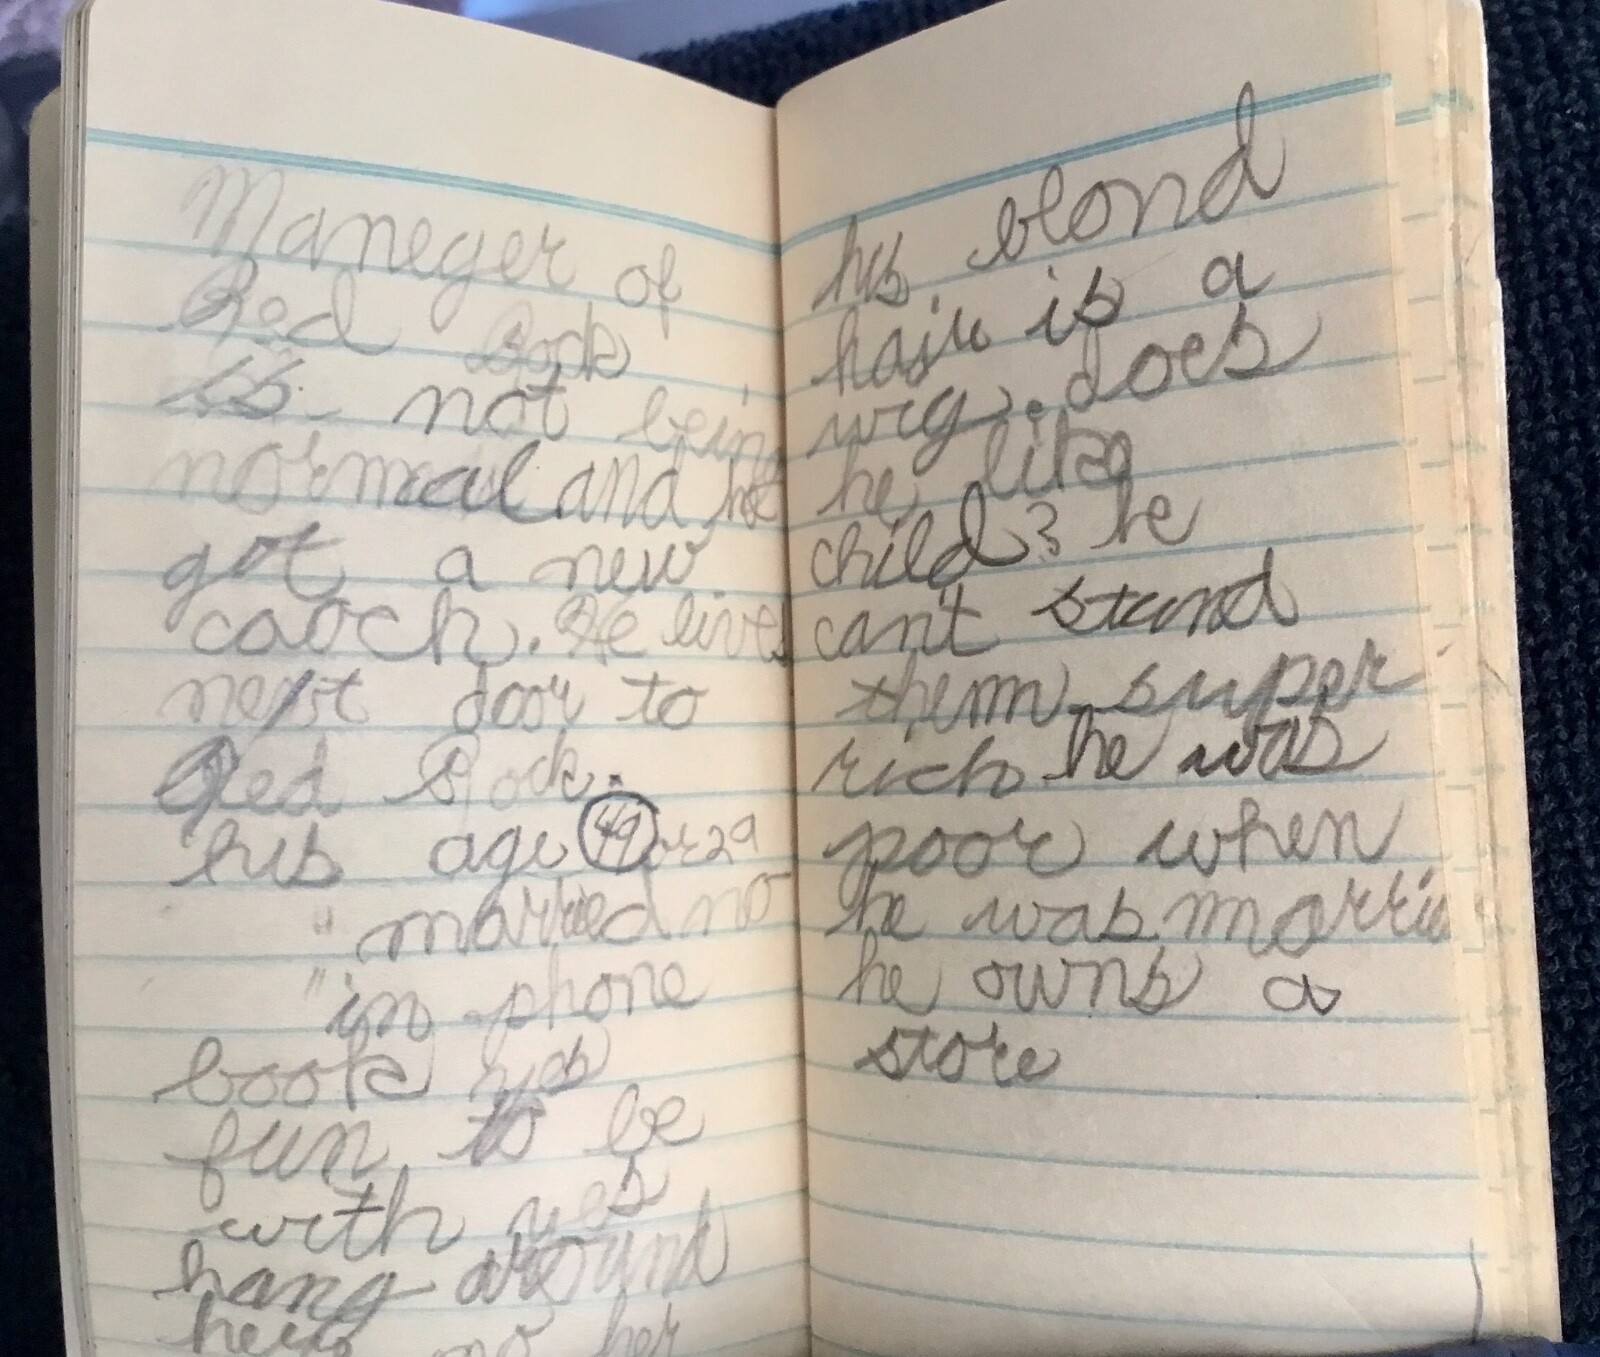 Maneger of
Red Rock
is not being
normal and he
got a new
caoch. He lives
next door to
Red Rock.
his age 49 or 29
" married no
" in phone
book yes
fun to be
with yes
hang around
here no her
his blond
hair is a
wig. does
he like
child? he
can't stand
them super
rich he was
poor when
he was marrie
he owns a
store